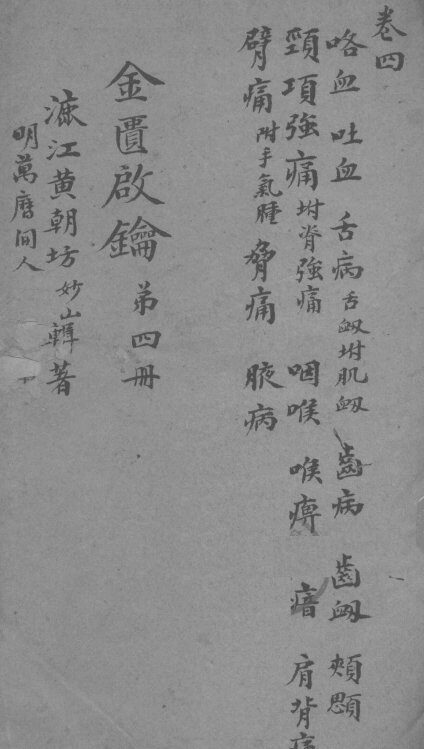 卷四
咯血 吐血 舌病 舌衄坿肌衄 齒病 齒衄 頰顋
頸項強痛 坿脊強痛 咽喉 喉痹 瘖 肩背痛
臂痛 附手氣腫 脅痛 腋病
金匱啟鑰 第四冊
江黄朝坊妙山輯著
明萬曆間人